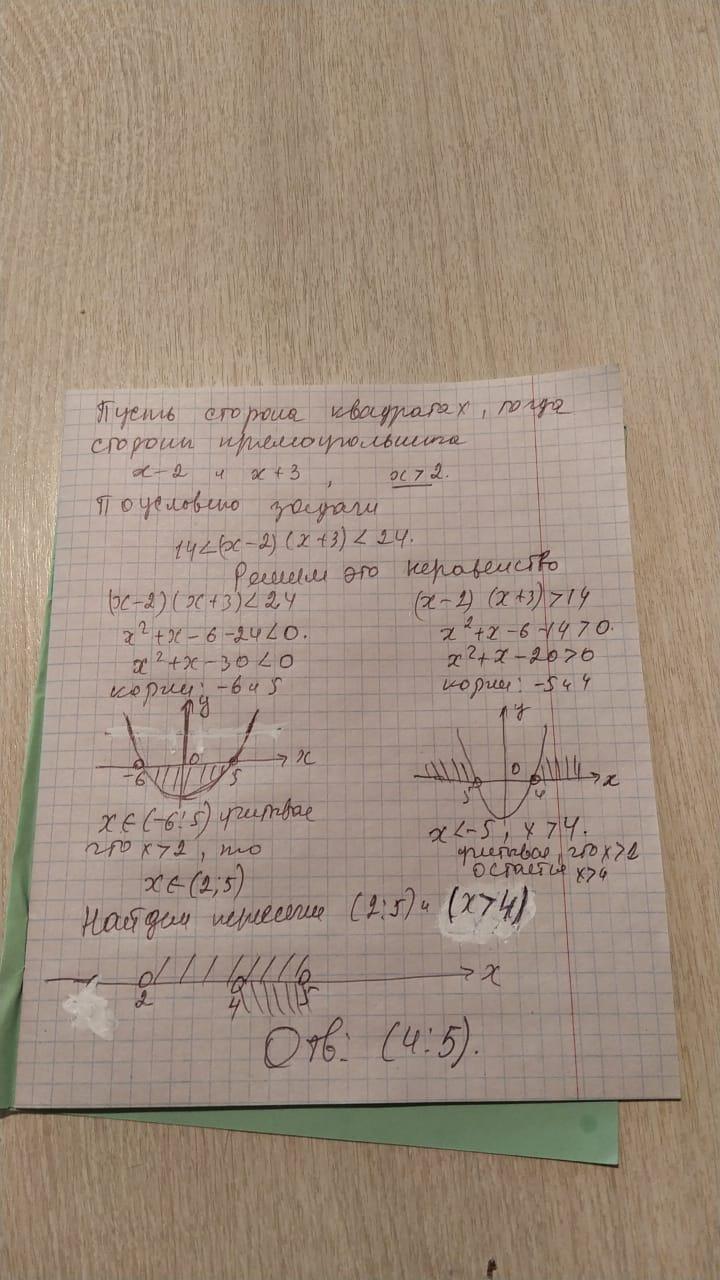 Пусть сторона квадрата x, тогда
стороны прямоугольника
x-2 и x+3, x>2.
По условию задачи
14<(x-2)(x+3)<24.
Решим это неравенство
(x-2)(x+3)<24
x²+x-6-24<0.
x²+x-30<0
корни: -6 и 5
y
0
x
-6
5
x∈(-6;5) учитывая
что x>2, то
x∈(2;5)
(x-2)(x+3)>14
x²+x-6-14>0.
x²+x-20>0
корни: -5 и 4
y
0
x
5
4
x<-5, x>4.
учитывая, что x>2
остаётся x>4
Найдём пересечение (2;5) и (x>4)
2
4
5
x
Отв: (4;5).